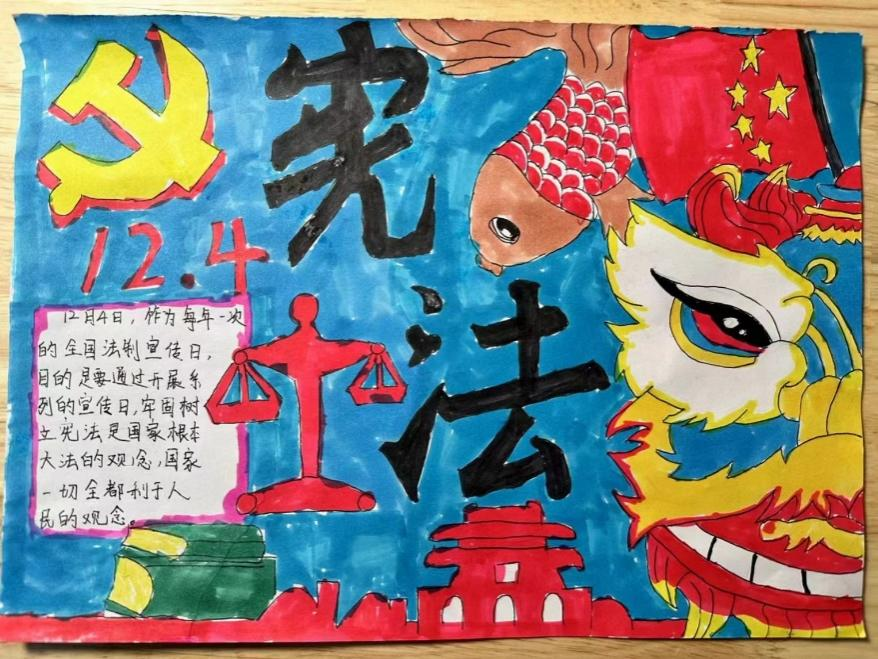 宪法
12.4
12月4日，作为每年一次
的全国法制宣传日，
目的是要通过开展系
列的宣传日，牢固树
立宪法是国家根本
大法的观念，国家
一切全都利于人
民的观念。